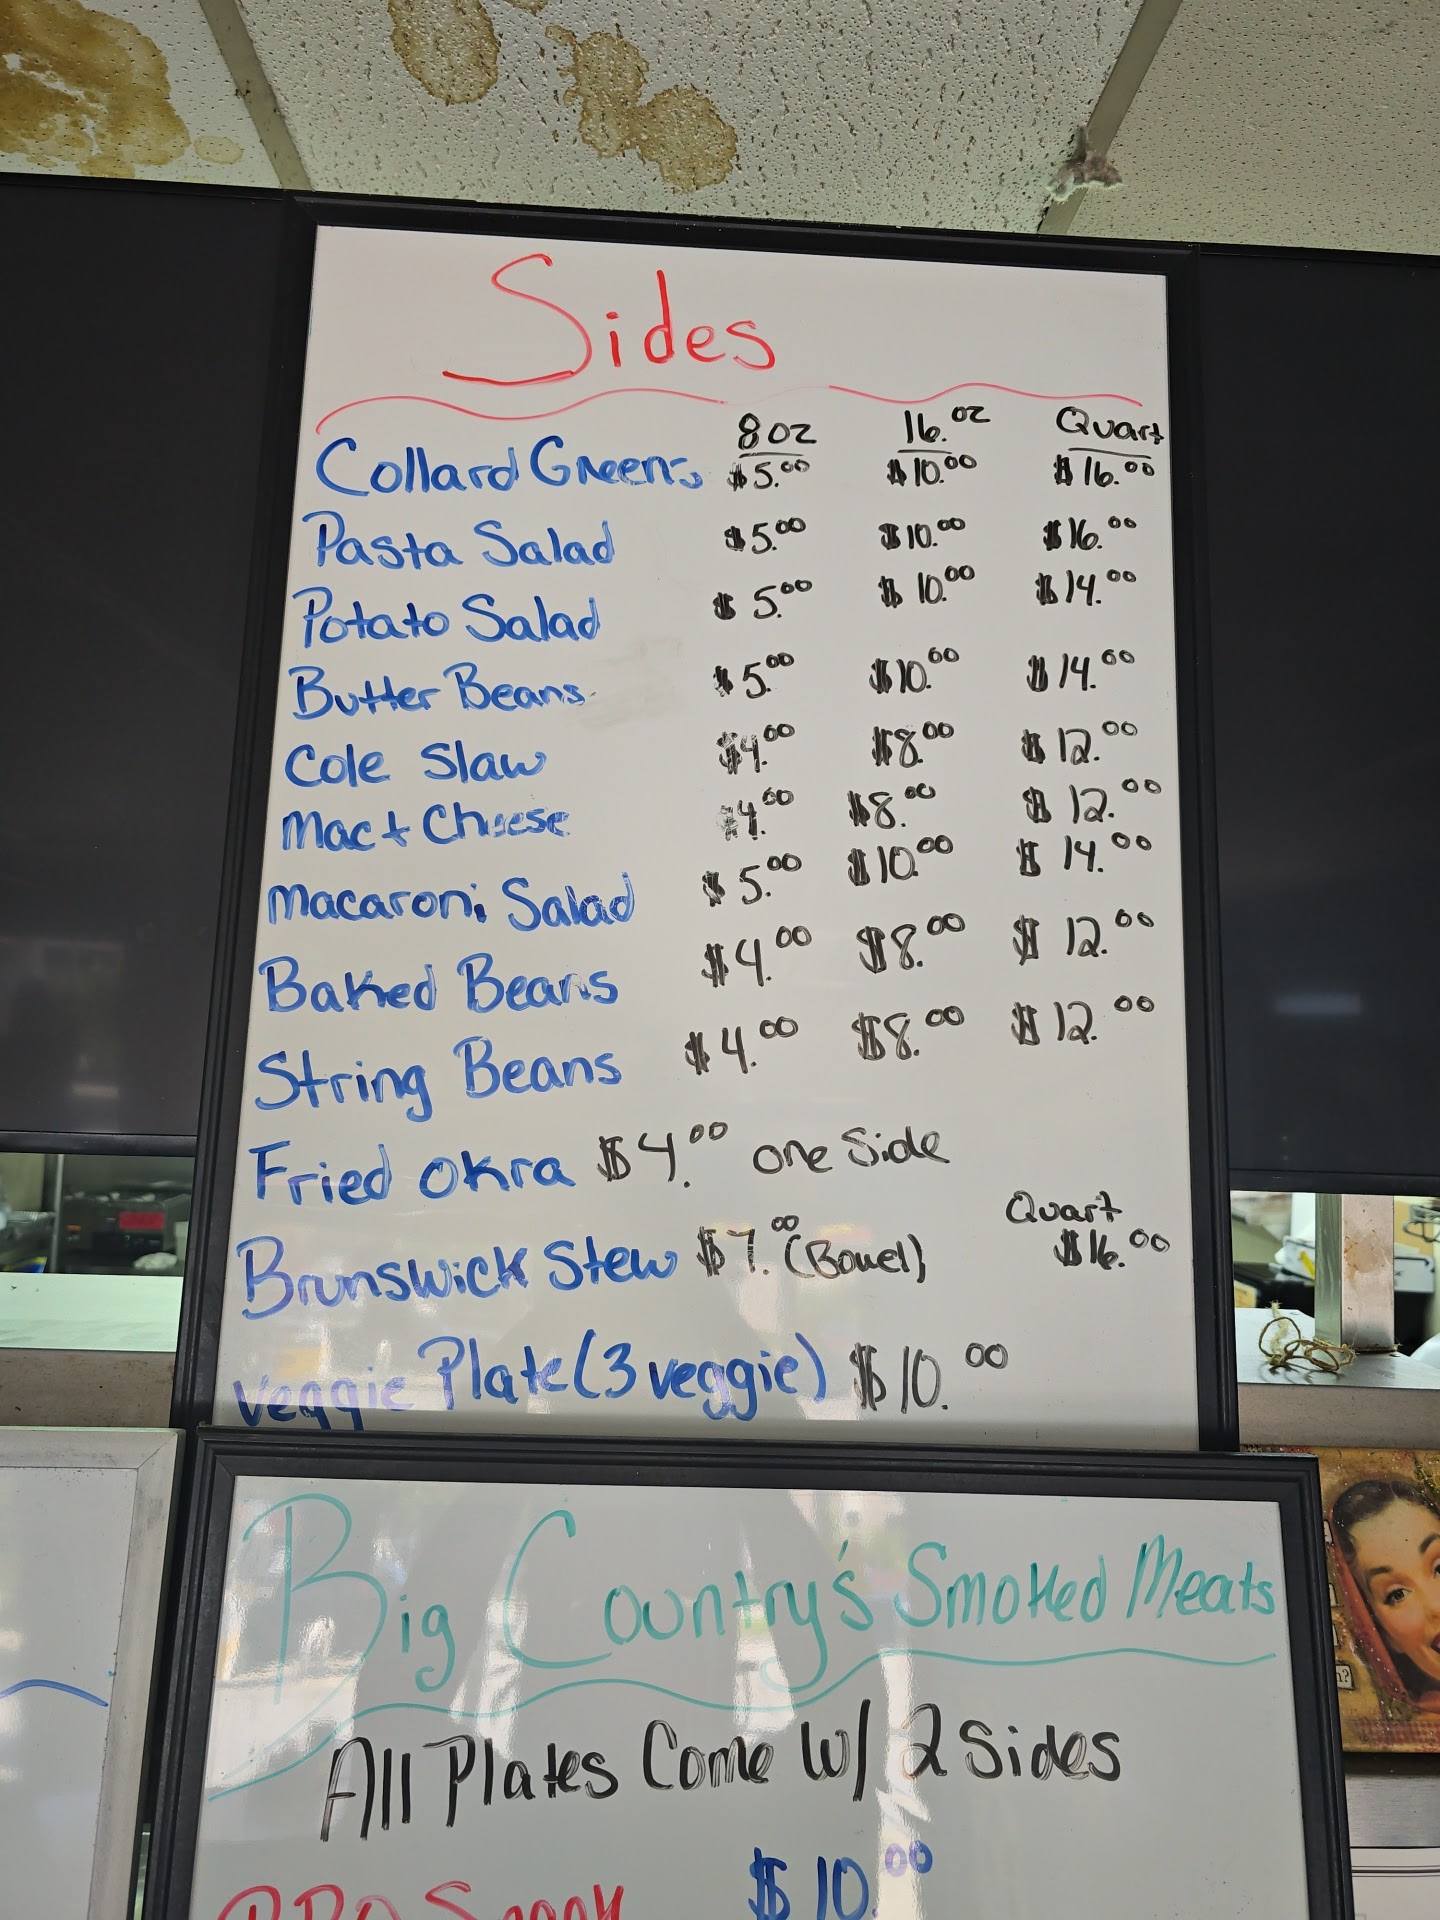 Sides
8 oz 16. oz Quart
Collard Greens $5.00 $10.00 $16.00
Pasta Salad $5.00 $10.00 $16.00
Potato Salad $5.00 $10.00 $14.00
Butter Beans $5.00 $10.00 $14.00
Cole Slaw $4.00 $8.00 $12.00
Mac + Cheese $4.00 $8.00 $12.00
Macaroni Salad $5.00 $10.00 $14.00
Baked Beans $4.00 $8.00 $12.00
String Beans $4.00 $8.00 $12.00
Fried Okra $4.00 one Side
Quart
Brunswick Stew $7.00 (Bowel) $16.00
Veggie Plate (3 veggie) $10.00
Big Country's Smoked Meats
All Plates Come W/ 2 Sides
$10.00